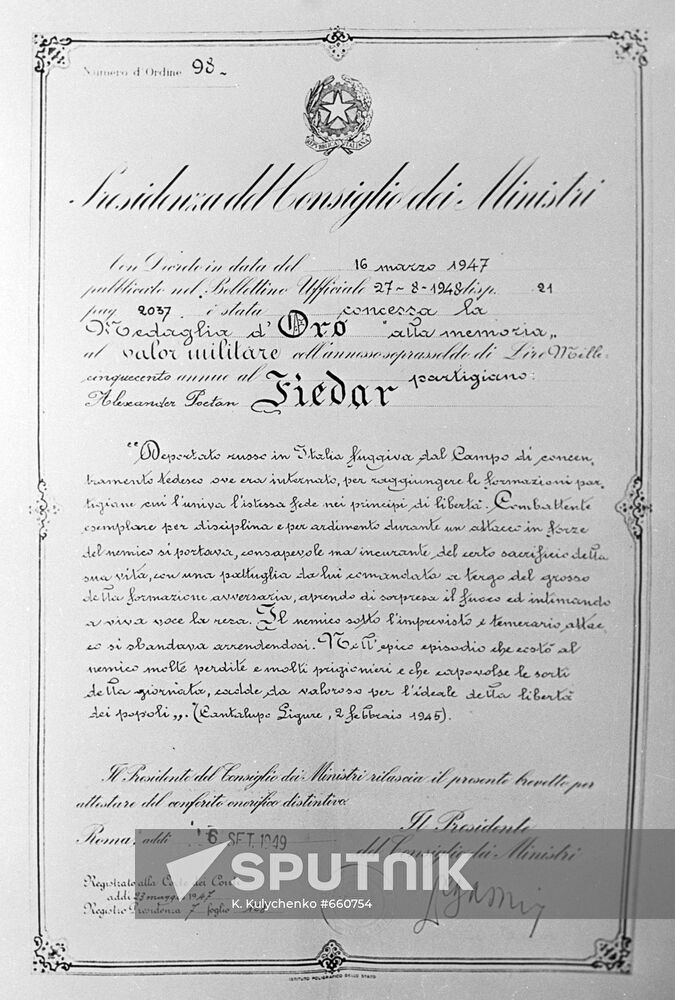 Numero d'Ordine 98-
REPVBBLICA ITALIANA
Presidenza del Consiglio dei Ministri
Con Decreto in data del 16 marzo 1947
pubblicato nel Bollettino Ufficiale 27-8-1948 disp. 21
pag. 2037. è stata concessa la
Medaglia d'Oro "alla memoria"
al valor militare coll'annesso soprassoldo di Lire Mille:
cinquecento annue al partigiano:
Alexander Poetan Fiedar
"Deportato russo in Italia fuggiva dal Campo di concen,
tramento tedesco ove era internato, per raggiungere le formazioni par,
tigiane cui l'univa l'istessa fede nei principi di libertà. Combattente
esemplare per disciplina e per ardimento durante un attacco in forze
del nemico si portava, consapevole ma incurante, del certo sacrificio della
sua vita, con una pattuglia da lui comandata a tergo del grosso
della formazione avversaria, aprendo di sorpresa il fuoco ed intimando
a viva voce la resa. Il nemico sotto l'imprevisto e temerario attac,
co si sbandava arrendendosi. Nell'epico episodio che costò al
nemico molte perdite e molti prigionieri e che capovolse le sorti
della giornata, cadde da valoroso per l'ideale della libertà
dei popoli". (Cantalupo Ligure, 2 febbraio 1945).
Il Presidente del Consiglio dei Ministri rilascia il presente brevetto per
attestare del conferito onorifico distintivo.
Roma, addì 16 SET. 1949
Il Presidente
del Consiglio dei Ministri
Registrato alla Corte dei Conti
addì 23 maggio 1947
Registro Presidenza 7 foglio
SPUTNIK
K. Kulychenko #660754
ISTITUTO POLIGRAFICO DELLO STATO